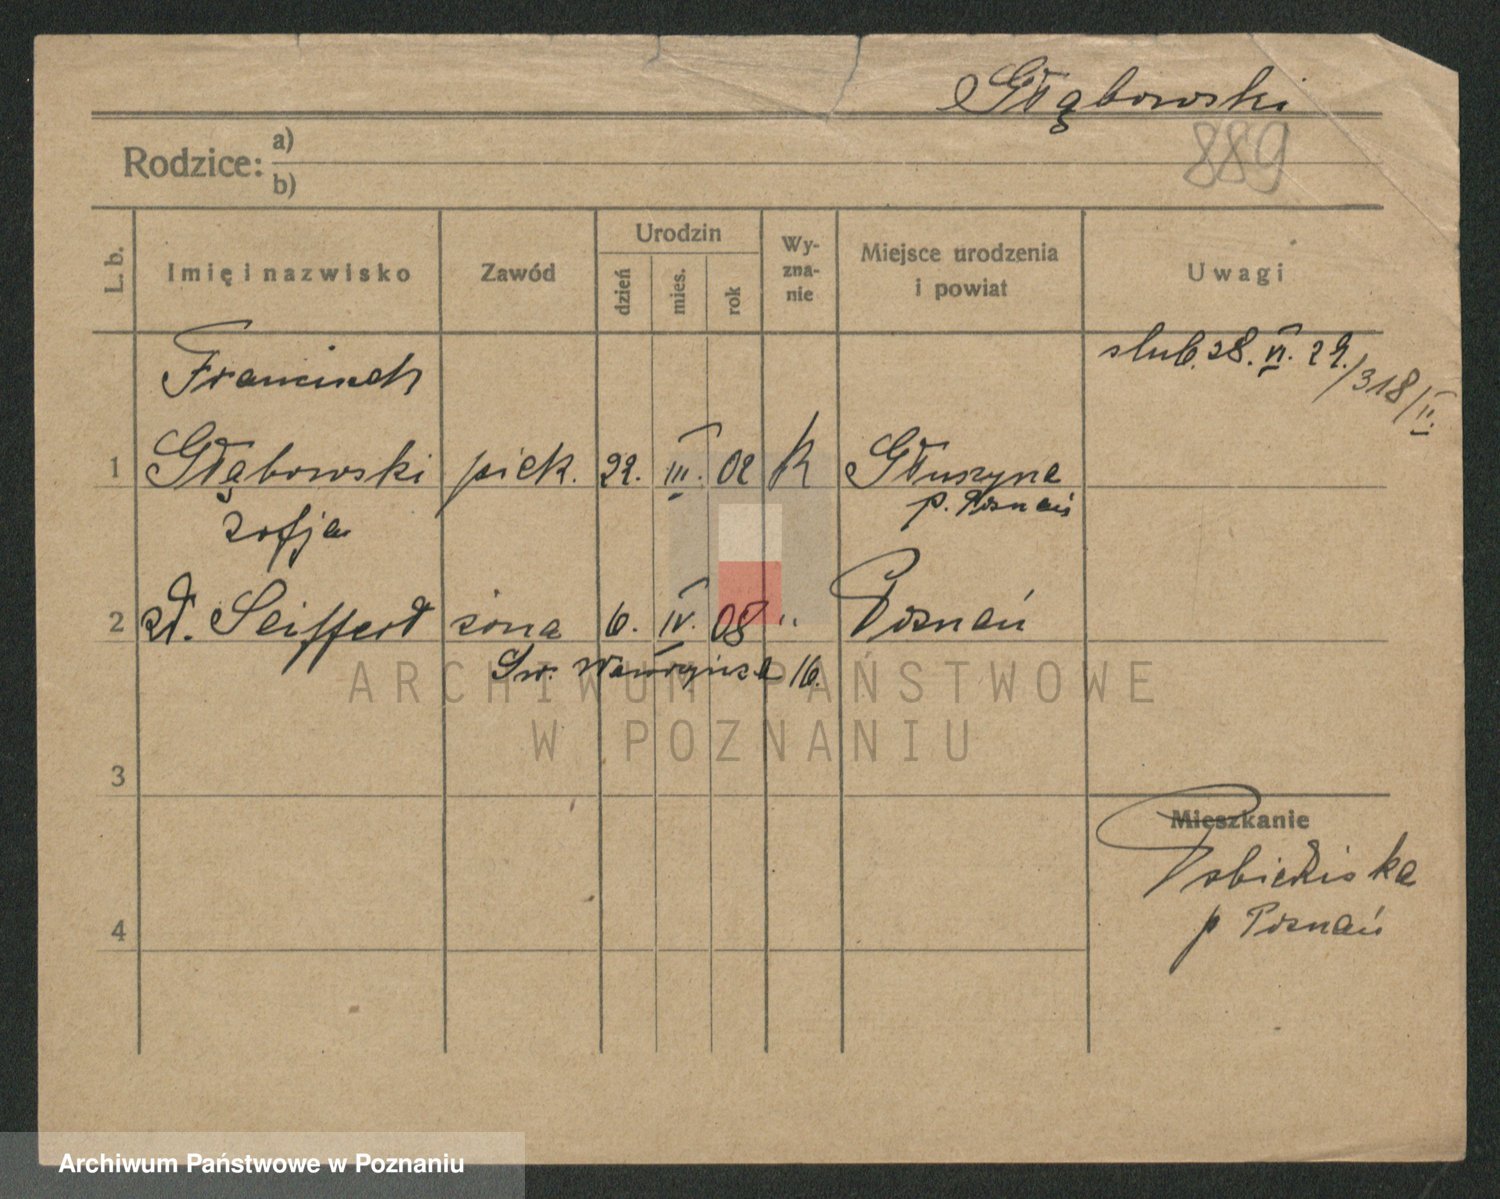 Głąbowski
889
Rodzice: a)
b)
L. b.
Imię i nazwisko
Zawód
Urodzin
dzień
mies.
rok
Wy-
zna-
nie
Miejsce urodzenia
i powiat
Uwagi
Franciszek
ślub. 28. VI. 29. /318/II.
1 Głąbowski piek. 22. III. 02 K Głuszyna
p. Poznań
Zofja
2 zd. Seiffert żona 6. IV. 08 " Poznań
Św. Wawrzyńca 16.
ARCHIWUM PAŃSTWOWE
W POZNANIU
3
Mieszkanie
p Poznań
4
Archiwum Państwowe w Poznaniu